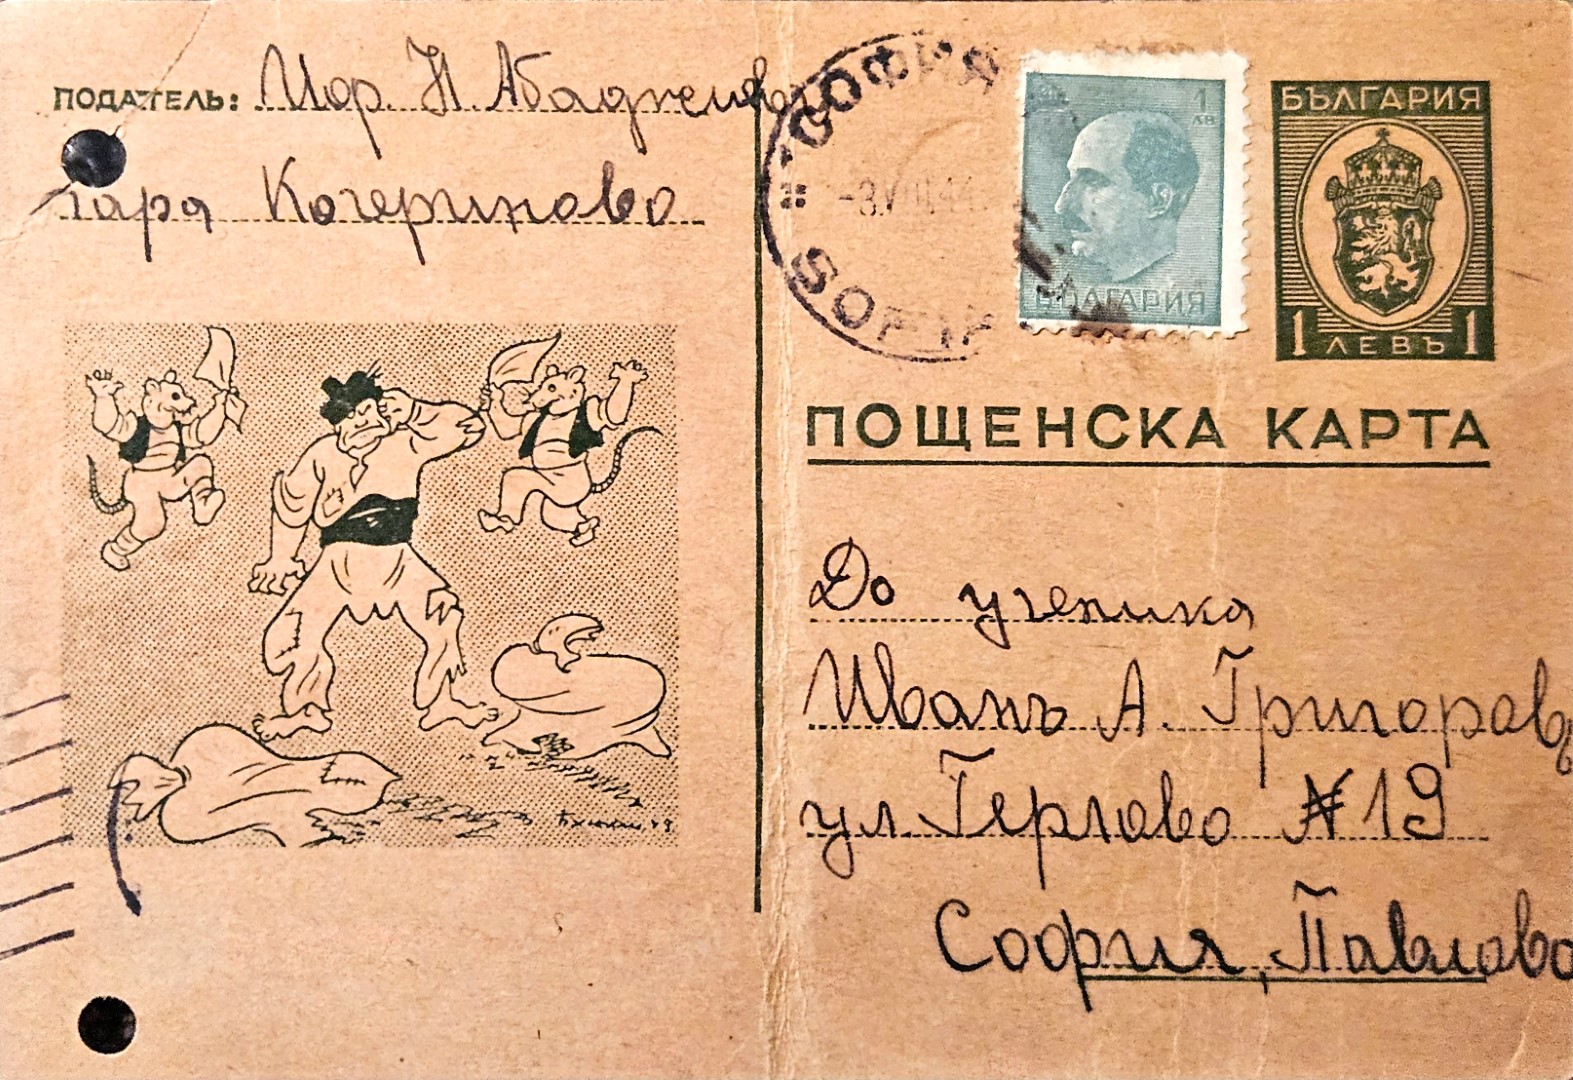 ПОДАТЕЛЬ: Йор. Н. Абаджиев
гара Кочериново
СОФИЯ
-8.VIII.44
SOFIA
1
ЛВ
БЪЛГАРИЯ
БЪЛГАРИЯ
1 ЛЕВЪ 1
ПОЩЕНСКА КАРТА
До ученика
Иванъ А. Григоровъ
ул. Герлово № 19
София, Павлово